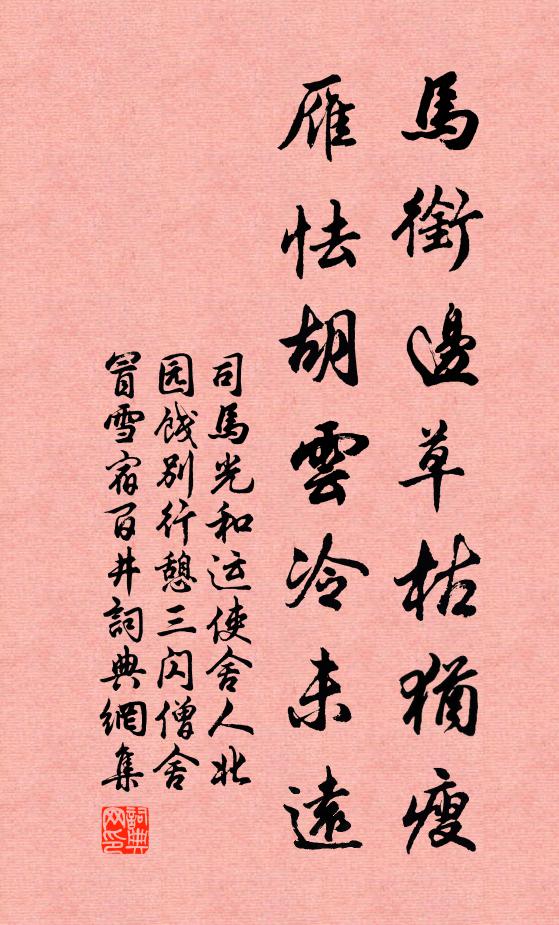 馬銜邊草枯猶瘦
雁怯胡雲冷未遠
司馬光和运使舍人北
园饯别行憩三闪僧舍
冒雪宿百井詞典網集
詞典网印